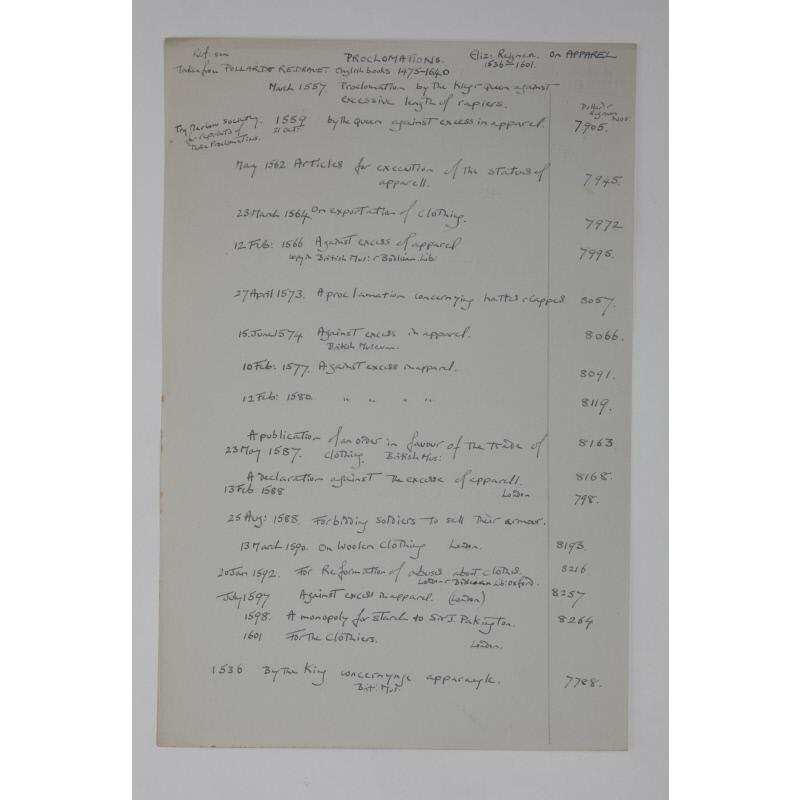 Ref.
PROCLOMATIONS. Eliz: Reigner. on APPAREL
Taken from POLLARD & REDRAVE. English books 1475-1640 1536 1601.
March 1557 Proclomation by the King & Queen against
excessive length of rapiers.
Pollard &
Nos:
Try Harleian Society. 1559 by the Queen against excess in apparel. 7905.
for reprints of 21 Oct:
these Proclomations.
May 1562 Articles for execution of the status of
apparell. 7945.
23 March 1564. On exportation of Clothing. 7972
12 Feb: 1566 Against excess of apparel
copy in British Mus: & Bodleian Lib: 7995.
27 April 1573. A proclamation concernying hattes & cappes 8057.
15. June 1574 Against excess in apparel. 8066.
British Museum.
10 Feb: 1577. Against excess in apparel. 8091.
12 Feb: 1580. " " " " 8119.
A publication of an order in favour of the trade of 8163
23 May 1587. Clothing. British Mus:
A Declaration against the excesse of apparell. 8168.
13 Feb. 1588 London 798.
25 Aug: 1588. Forbidding soldiers to sell their armour.
13 March 1590. On Woolen Clothing London. 8193.
20 Jan 1592. For Reformation of abuses about clothes. 8216
London & Bodleian Lib: Oxford.
July 1597 Against excess in apparel. (London) 8257
1598. A monopoly for starch to Sir J. Pakington. 8264
1601 For the Clothiers. London.
1536 By the King concernynge 7788.
Brit: Mus: